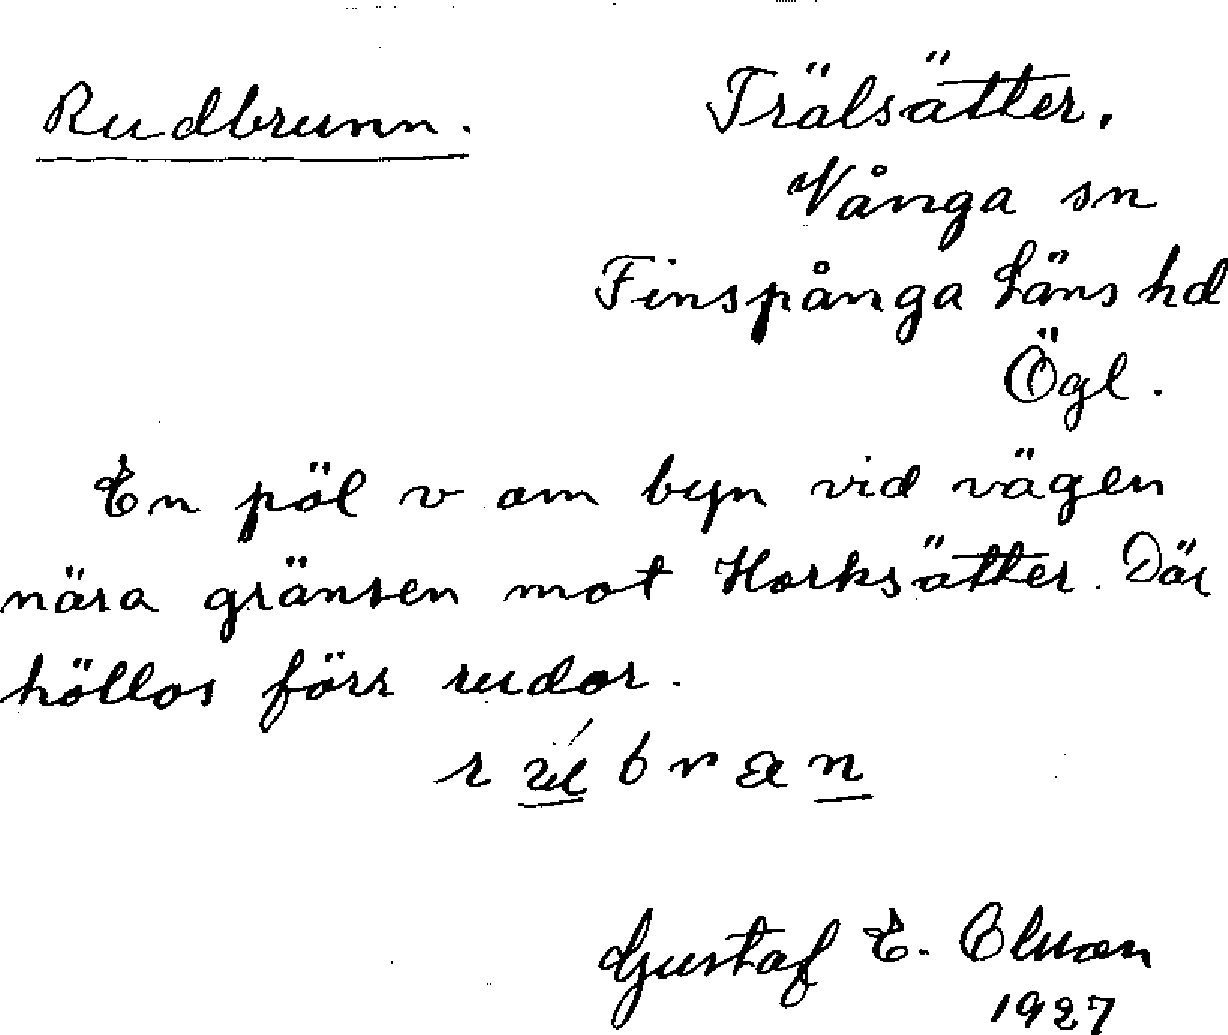 Rudbrunn.
Trälsätter.
Vånga sn
Finspånga läns hd
Ögl.
En pöl v om byn vid vägen
nära gränsen mot Horksätter. Där
höllos förr rudor.
Gustaf E.
1927